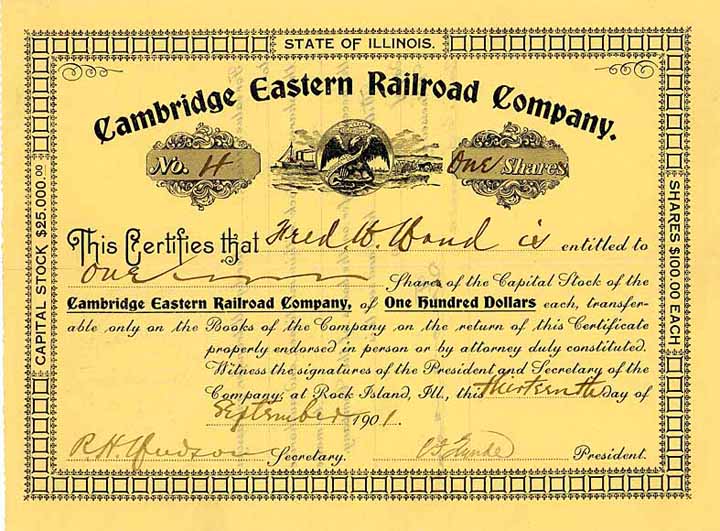 STATE OF ILLINOIS.
Cambridge Eastern Railroad Company.
No. 4
One Shares
CAPITAL STOCK $25,000.00
SHARES $100.00 EACH
This Certifies that Fred. W. is entitled to
One Shares of the Capital Stock of the
Cambridge Eastern Railroad Company, of One Hundred Dollars each, transfer-
able only on the Books of the Company on the return of this Certificate
properly endorsed in person or by attorney duly constituted.
Witness the signatures of the President and Secretary of the
Company, at Rock Island, Ill., this thirteenth day of
September 1901.
R. H. Hudson Secretary. President.